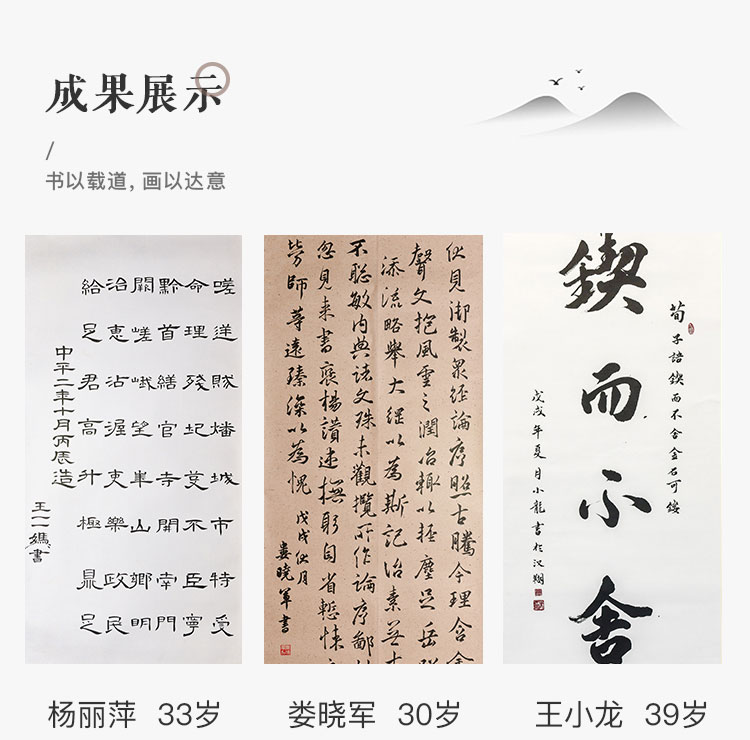 成果展示
/
书以载道, 画以达意
嗟逆賊燔城市特受
命理殘圮芟不臣寧
黔首繕官寺開南門
闕嵯峨望崋山鄉明
治惠沾渥吏樂政民
給足君高升極鼎足
中平二年十月丙辰造
伏見御製眾經論序照古騰今理含金
聲文抱風雲之潤治輒以輕塵足岳墜
添流略舉大綱以為斯記治素無才
不聰敏內典諸文殊未觀攬所作論序鄙拙
忽見來書褒揚讚述撫躬自省慙悚交
勞師等遠臻深以為愧
戊戌秋月
婁曉軍書
荀子語鍥而不舍金石可鏤
鍥而不舍
戊戌年夏月小龍書於
杨丽萍 33岁
娄晓军 30岁
王小龙 39岁